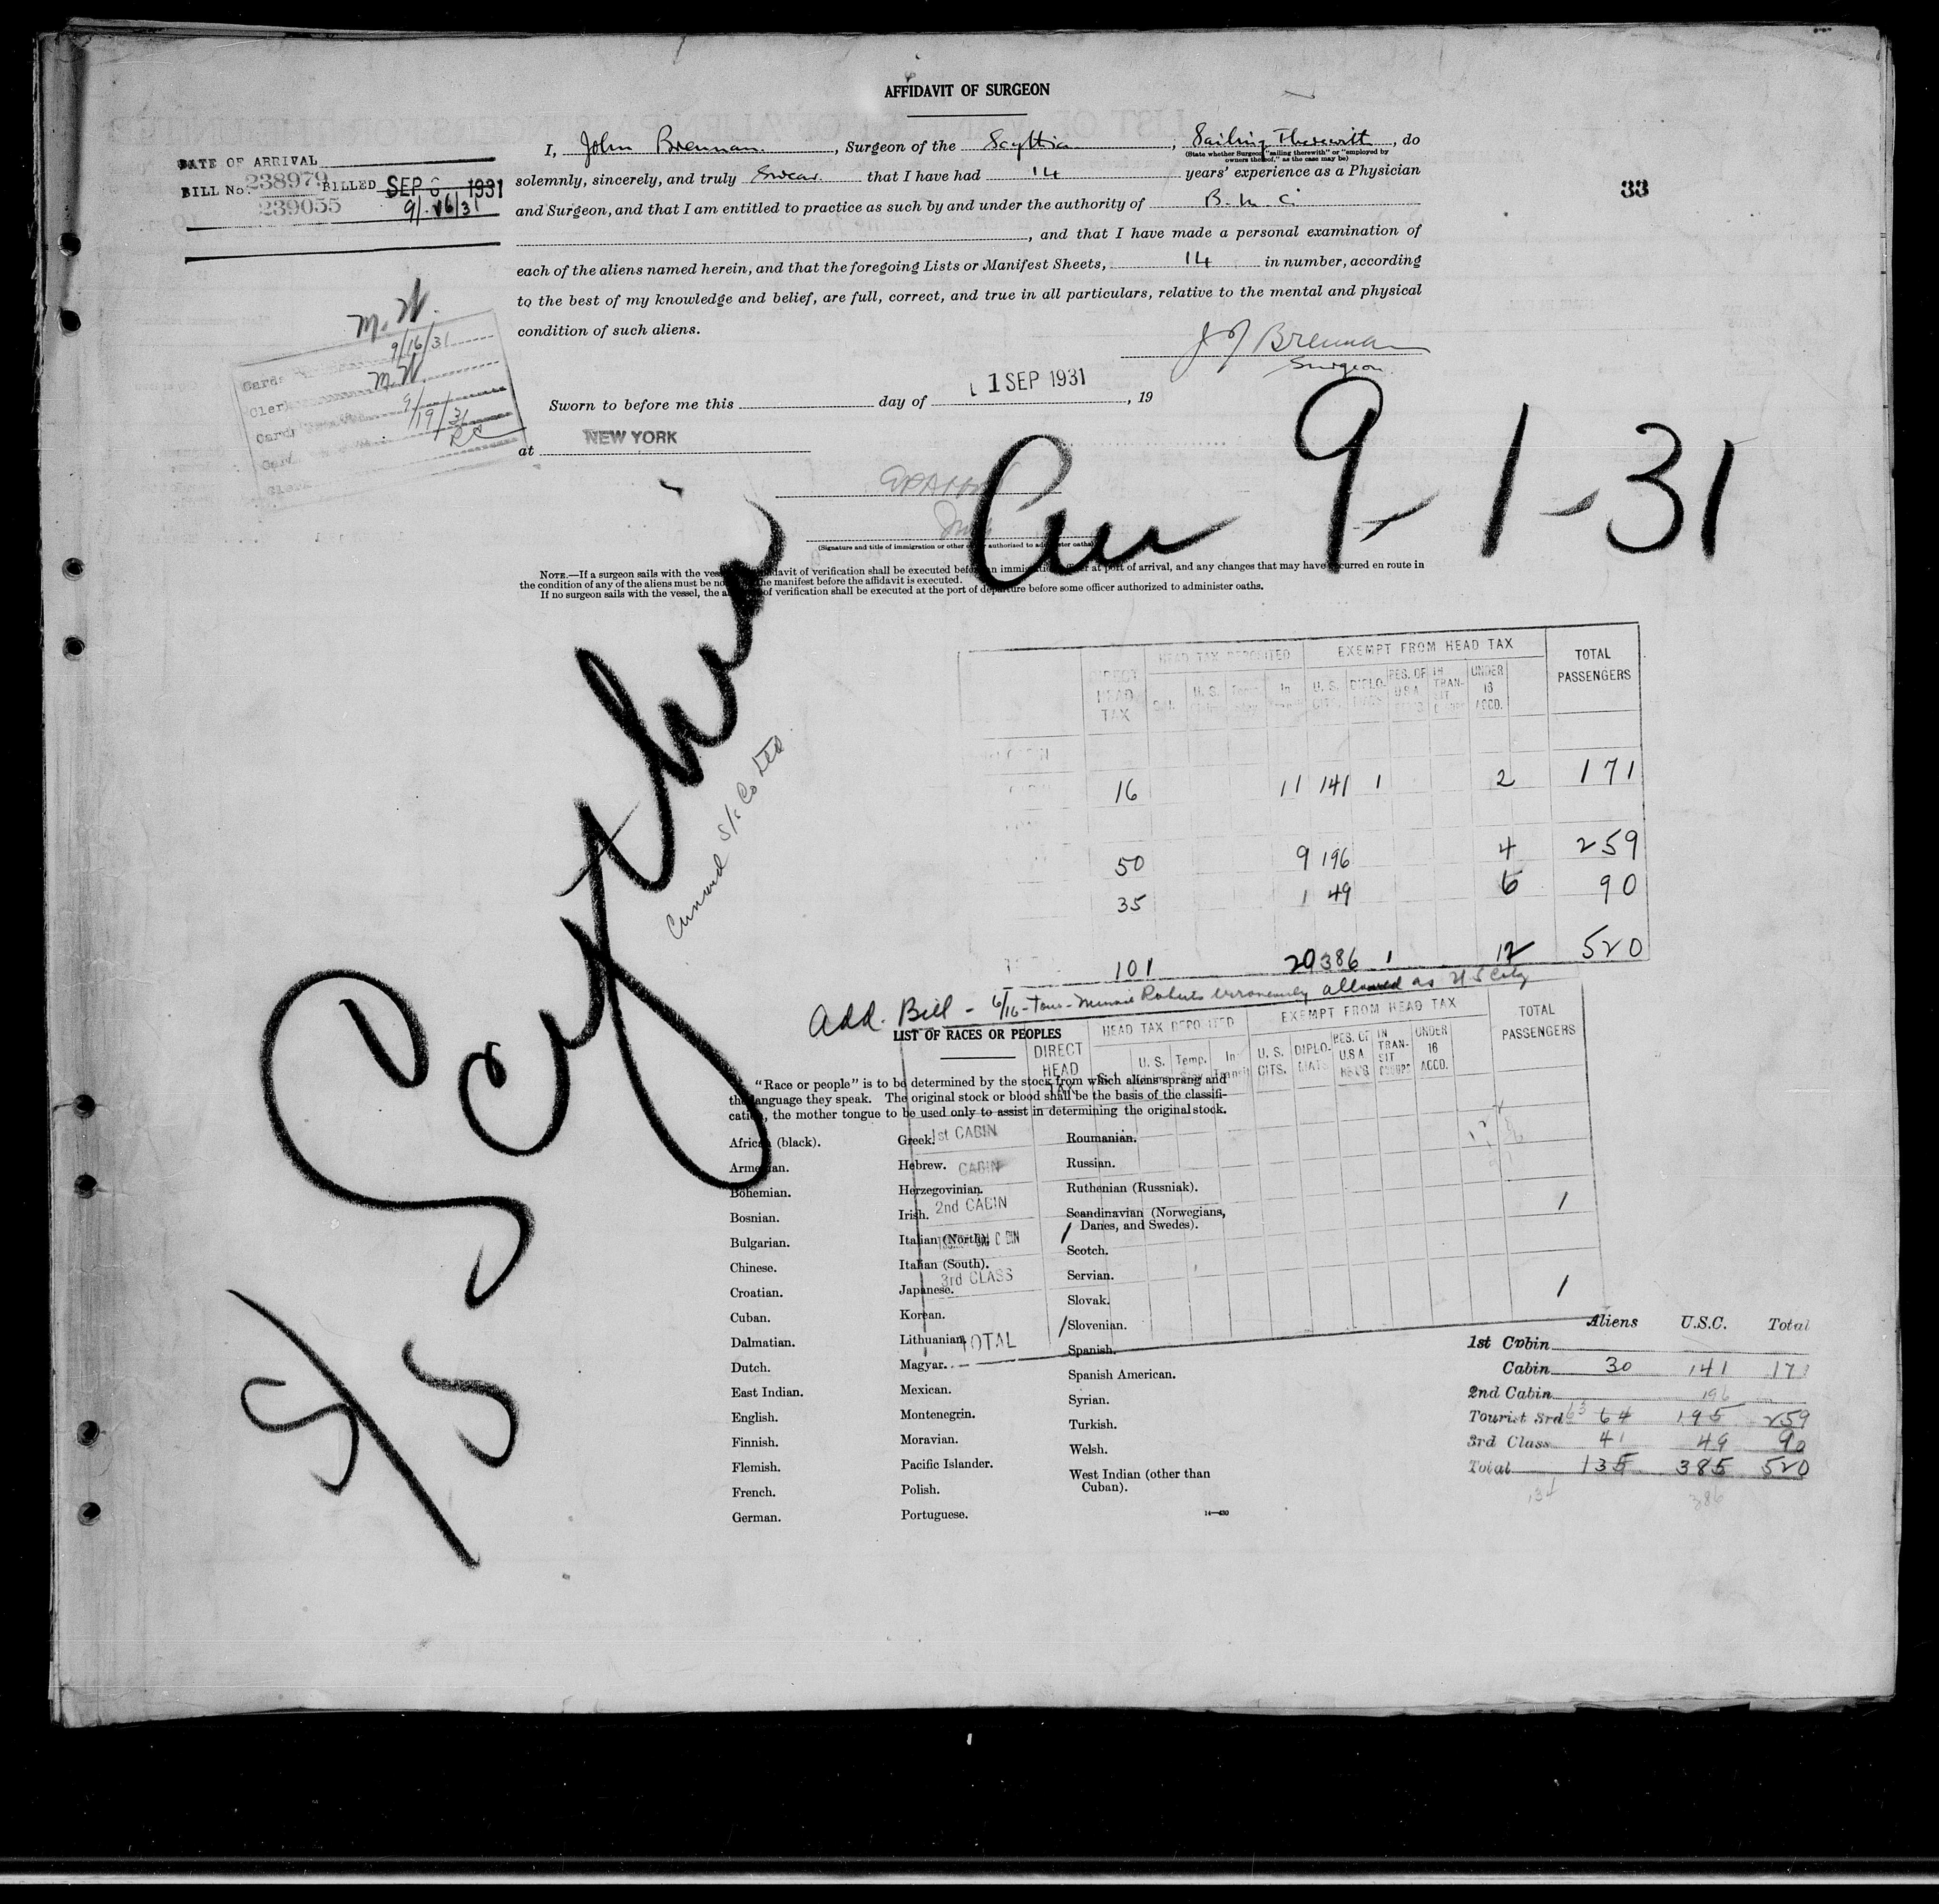 AFFIDAVIT OF SURGEON
DATE OF ARRIVAL
BILL No. 238979 BILLED SEP 1931
239055 9/16/31
33
I, John Brennan, Surgeon of the Scythia, Sailing Therewith, do
(State whether Surgeon "sailing therewith" or "employed by
owners thereof," as the case may be)
solemnly, sincerely, and truly Swear that I have had 14 years' experience as a Physician
and Surgeon, and that I am entitled to practice as such by and under the authority of
, and that I have made a personal examination of
each of the aliens named herein, and that the foregoing Lists or Manifest Sheets, 14 in number, according
to the best of my knowledge and belief, are full, correct, and true in all particulars, relative to the mental and physical
condition of such aliens.
J J Brennan
Surgeon.
M.W.
9/16/31
M.W.
9/19/31
Sworn to before me this day of 1 SEP 1931, 19
at NEW YORK
(Signature and title of immigration or other authorized to administer oaths)
Arr 9-1-31
NOTE.—If a surgeon sails with the vessel, affidavit of verification shall be executed before an immigration officer at port of arrival, and any changes that may have occurred en route in
the condition of any of the aliens must be noted the manifest before the affidavit is executed.
If no surgeon sails with the vessel, the affidavit of verification shall be executed at the port of departure before some officer authorized to administer oaths.
S/S Scythia
Cunard S/S Co Ltd
HEAD TAX DEPOSITED EXEMPT FROM HEAD TAX TOTAL PASSENGERS
DIRECT HEAD TAX U. S. In U. S. CITS. DIPLOMATS RES. OF U.S.A. IN TRANSIT UNDER 16 ACCO.
16 11 141 1 2 171
50 9 196 4 259
35 1 49 6 90
101 20 386 1 12 520
Add. Bill - 6/16 - Tour - Minnie Roberts erroneously allowed as U S City
LIST OF RACES OR PEOPLES
HEAD TAX DEPOSITED EXEMPT FROM HEAD TAX TOTAL PASSENGERS
DIRECT HEAD TAX U. S. Temp. In Transit U. S. CITS. DIPLOMATS RES. OF U.S.A. IN TRANSIT UNDER 16 ACCO.
"Race or people" is to be determined by the stock from which aliens sprang and
the language they speak. The original stock or blood shall be the basis of the classifi-
cation, the mother tongue to be used only to assist in determining the original stock.
African (black).
Armenian.
Bohemian.
Bosnian.
Bulgarian.
Chinese.
Croatian.
Cuban.
Dalmatian.
Dutch.
East Indian.
English.
Finnish.
Flemish.
French.
German.
Greek.
Hebrew.
Herzegovinian.
Irish.
Italian (North).
Italian (South).
Japanese.
Korean.
Lithuanian.
Magyar.
Mexican.
Montenegrin.
Moravian.
Pacific Islander.
Polish.
Portuguese.
Roumanian.
Russian.
Ruthenian (Russniak).
Scandinavian (Norwegians,
Danes, and Swedes).
Scotch.
Servian.
Slovak.
Slovenian.
Spanish.
Spanish American.
Syrian.
Turkish.
Welsh.
West Indian (other than
Cuban).
14—430
1st CABIN
CABIN
2nd CABIN 1
3rd CLASS
TOTAL 1 1
Aliens U.S.C. Total
1st Cabin
Cabin 30 141 171
2nd Cabin 196
Tourist 3rd 63 64 195 259
3rd Class 41 49 90
Total 135 385 520
134 386